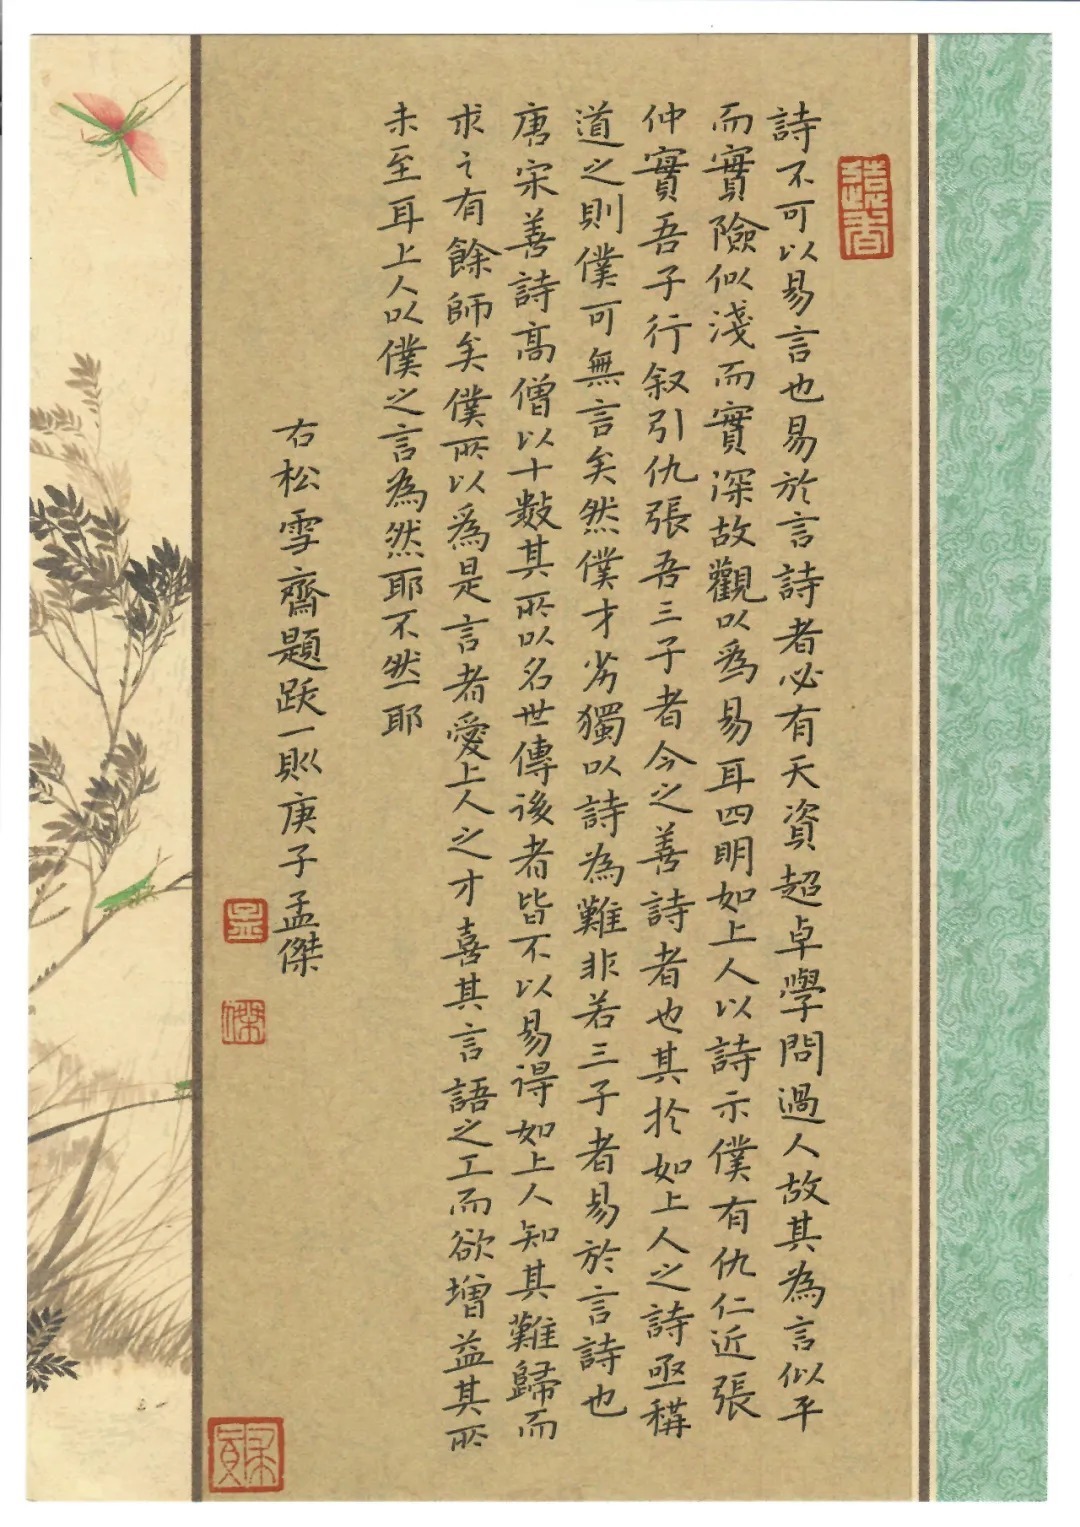 詩不可以易言也易於言詩者必有天資超卓學問過人故其為言似平
而實險似淺而實深故觀以為易耳四明如上人以詩示僕有仇仁近張
仲實吾子行叙引仇張吾三子者今之善詩者也其於如上人之詩亟稱
道之則僕可無言矣然僕才劣獨以詩為難非若三子者易於言詩也
唐宋善詩高僧以十數其所以名世傳後者皆不以易得如上人知其難歸而
求之有餘師矣僕所以為是言者愛上人之才喜其言語之工而欲增益其所
未至耳上人以僕之言為然耶不然耶
右松雪齋題跋一則庚子孟傑
孟
傑